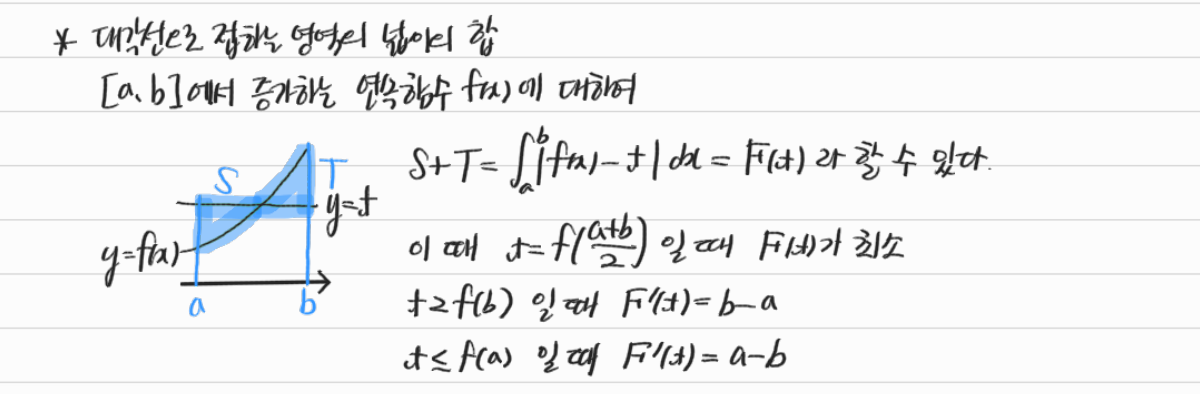 * 대각선으로 접하는 영역의 넓이의 합
[a, b]에서 증가하는 연속함수 f(x)에 대하여
S
T
y=t
y=f(x)
a
b
S+T=∫ₐᵇ|f(x)-t|dx=F(t)라 할 수 있다.
이 때 t=f((a+b)/2)일 때 F(t)가 최소
t≥f(b) 일 때 F'(t)=b-a
t≤f(a) 일 때 F'(t)=a-b